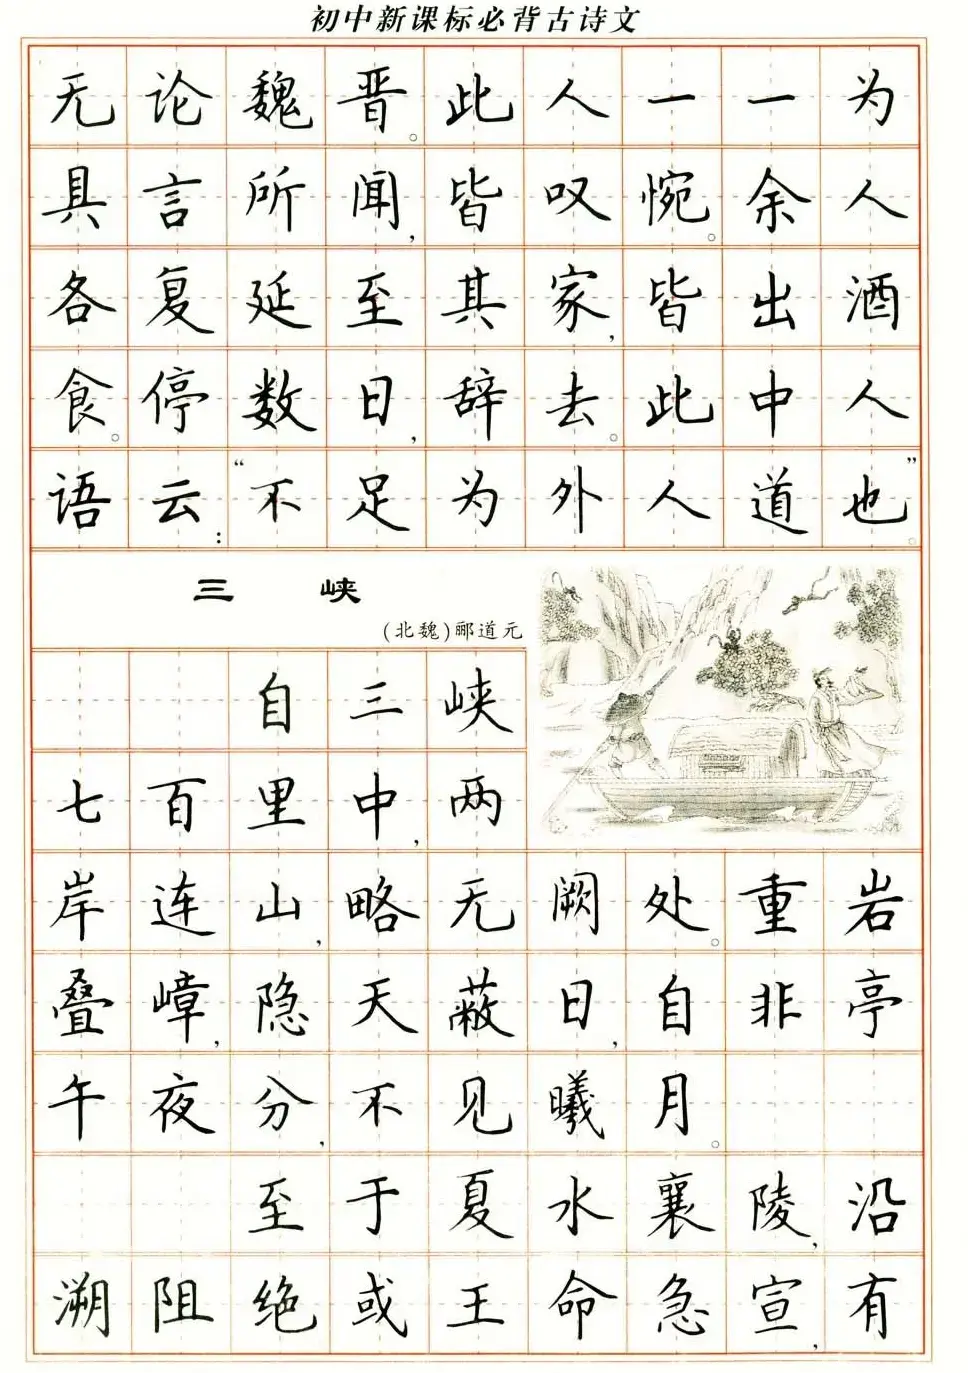 初中新课标必背古诗文
无论魏晋。此人一一为
具言所闻,皆叹惋。余人
各复延至其家,皆出酒
食。停数日,辞去。此中人
语云:“不足为外人道也”。
三 峡
(北魏)郦道元
自三峡
七百里中,两
岸连山,略无阙处。重岩
叠嶂,隐天蔽日,自非亭
午夜分,不见曦月。
至于夏水襄陵,沿
溯阻绝或王命急宣,有